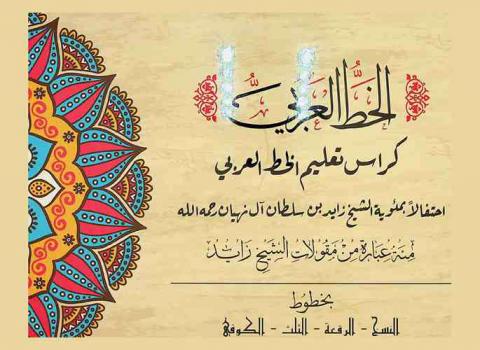 الخط العربي
كراس تعليم الخط العربي
احتفالاً بمئوية الشيخ زايد بن سلطان آل نهيان رحمه الله
مئة عبارة من مقولات الشيخ زايد
بخطوط
النسخ - الرقعة - الثلث - الكوفي